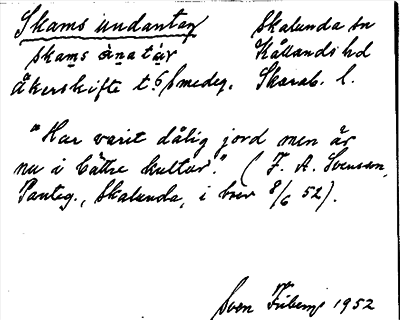 Skams undantag Skalunda sn
skams ánatáν Kållands hd
åkerskifte t. 6/ smedeg. Skarab. l.
"Har varit dålig jord men är
nu i bättre kultur." (F. A. Svensson,
Panteg., Skalunda, i brev 8/6 52).
Sven 1952